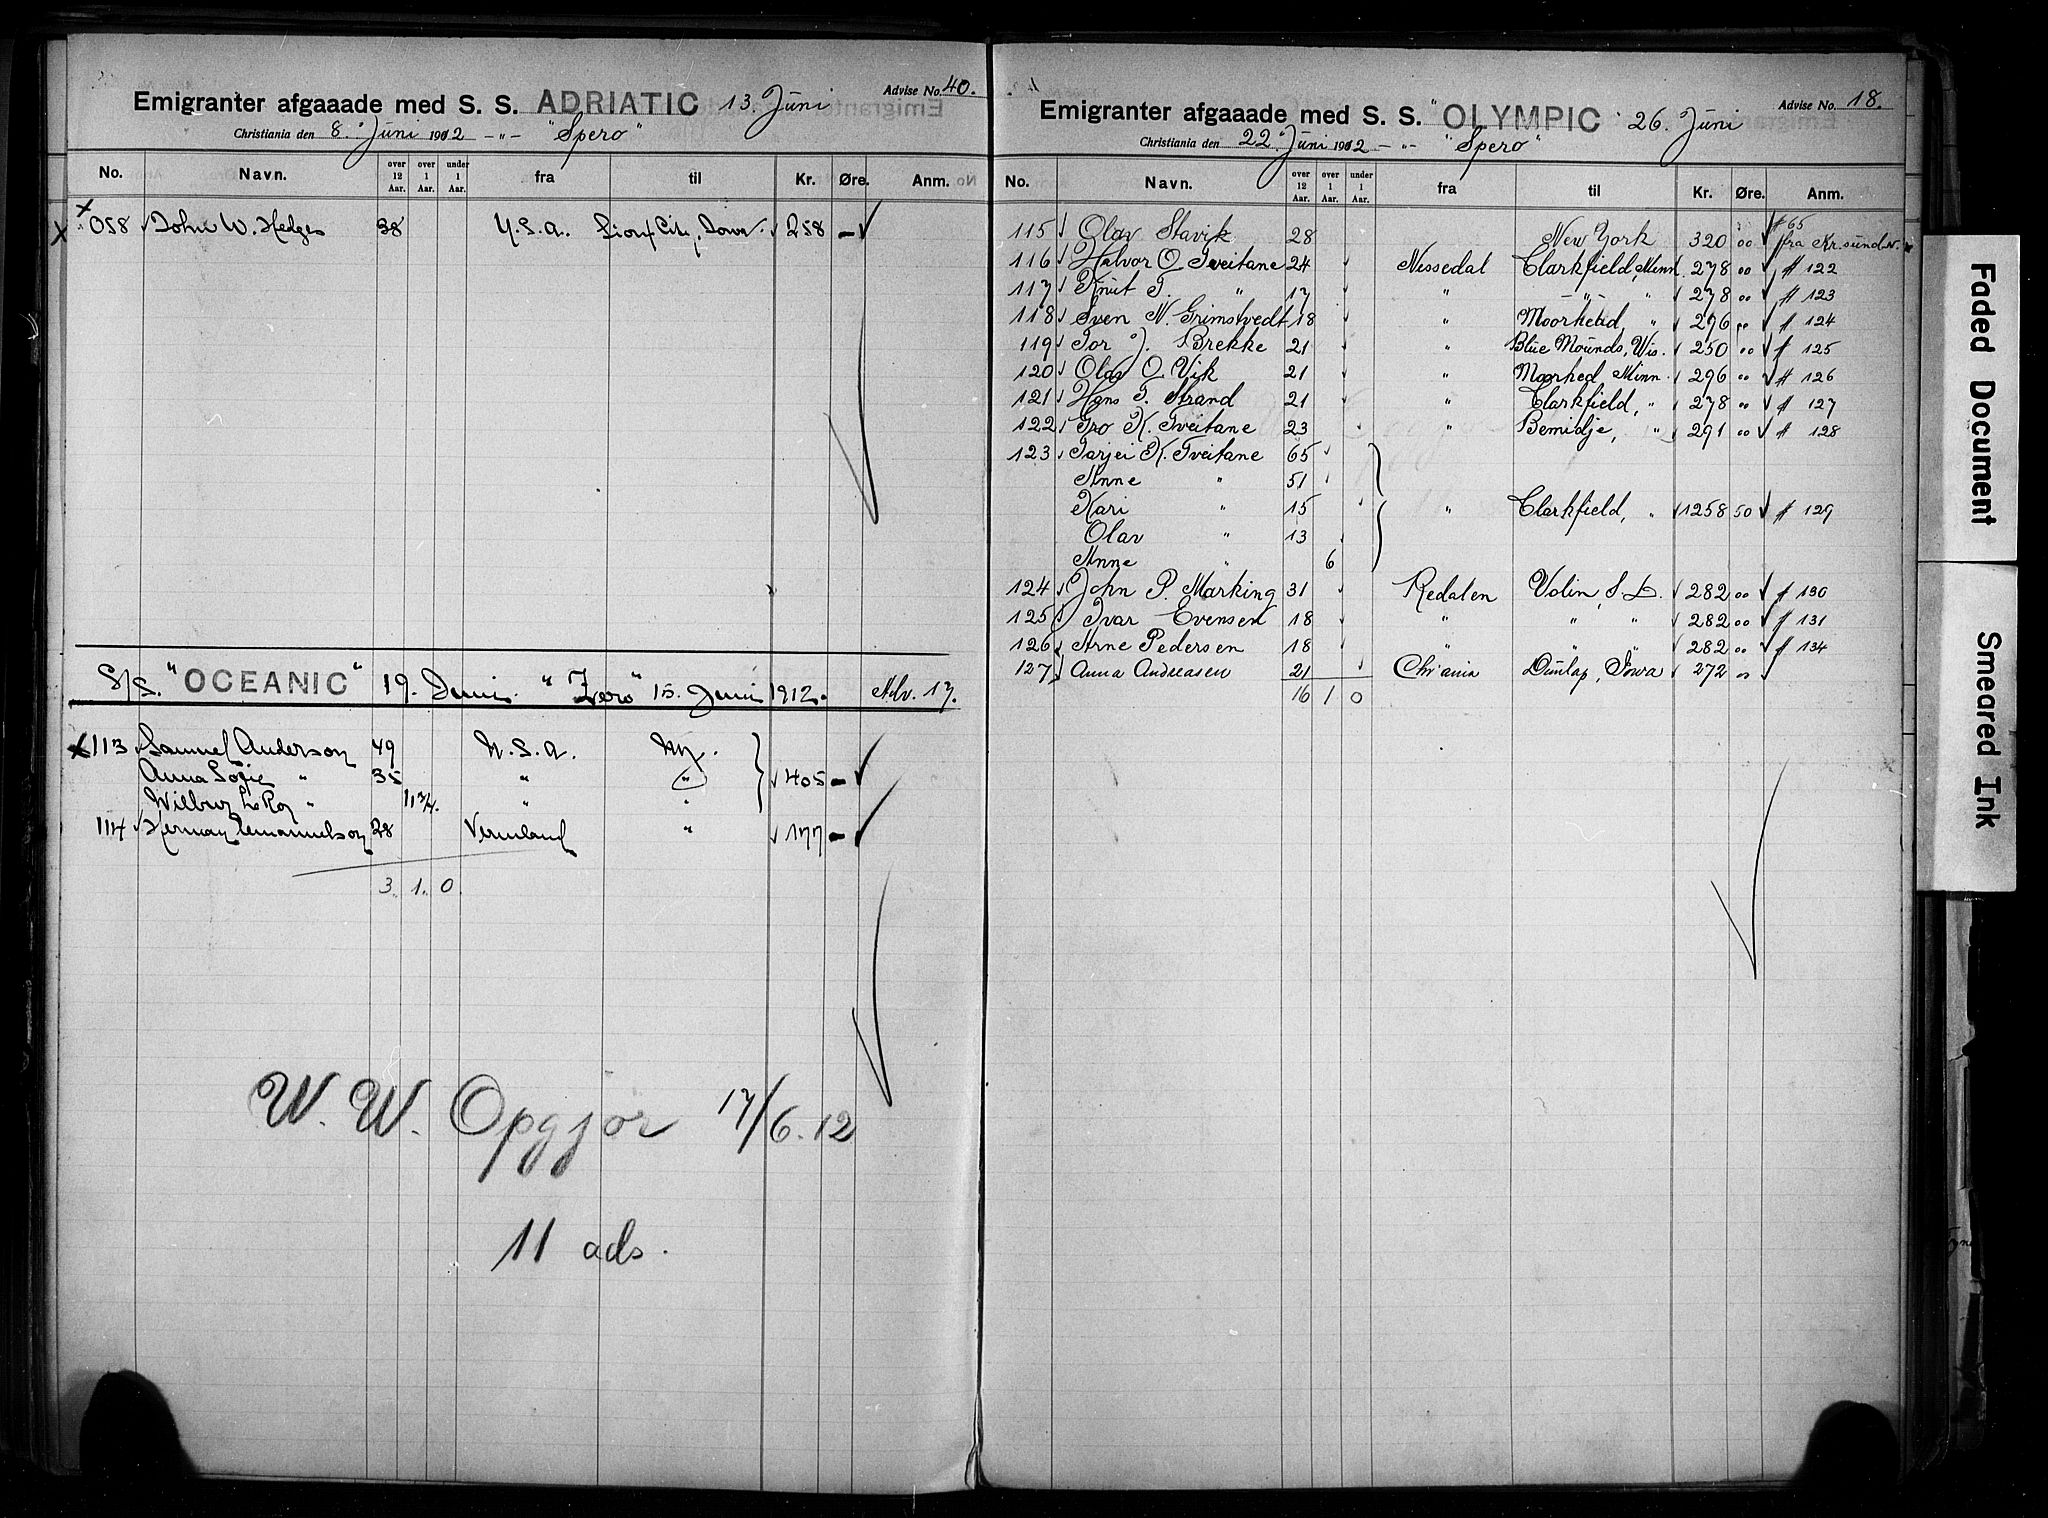 Advise No. 40.
Emigranter afgaaade med S. S. ADRIATIC 13. Juni
Christiania den 8. Juni 1912 -"- "Spero"
No. Navn. over 12 Aar. over 1 Aar. under 1 Aar. fra til Kr. Øre. Anm.
058 John W. Hedges 38 U.S.A. Sioux City, Iowa. 258 -
S/S. "OCEANIC" 19. Juni. "Zero" 15. Juni 1912. Adv. 17.
113 Samuel Anderson 49 U.S.A. NY.
Anna Sofie " 35 " " 405 -
Wilbur LeRoy " 11 3/4. " "
114 Herman Emanuelson 28 Vermland " 177 -
3. 1. 0.
W. W. Opgjør 17/6.12
11 ads.
Advise No. 18.
Emigranter afgaaade med S. S. "OLYMPIC" 26. Juni
Christiania den 22. Juni 1912 -"- "Spero"
No. Navn. over 12 Aar. over 1 Aar. under 1 Aar. fra til Kr. Øre. Anm.
115 Olav Stavik 28 New York 320 00 # 65 fra Kr.sund N.
116 Halvor O Tveitane 24 Nissedal Clarkfield, Minn. 278 00 # 122
117 Knut T. " 17 " -"- " 278 00 # 123
118 Sven N. Grimstvedt 18 " Moorhead, " 296 00 # 124
119 Tor J. Brekke 21 " Blue Mounds, Wis. 250 00 # 125
120 Olav O. Vik 21 " Moorhed Minn. 296 00 # 126
121 Hans T. Strand 21 " Clarkfield, " 278 00 # 127
122 Gro K. Tveitane 23 " Bemidje, " 291 00 # 128
123 Tarjei K. Tveitane 65
Anne " 51
Kari " 15 " Clarkfield, " 1258 50 # 129
Olav " 13
Anne " 6
124 John P. Marking 31 Redalen Volin, S. D. 282 00 # 130
125 Ivar Evensen 18 " " " 282 00 # 131
126 Arne Pedersen 18 " " " 282 00 # 134
127 Anna Andreasen 21 Chr'ania Dunlap, Iowa 272 00
16 1 0
Faded Document
Smeared Ink